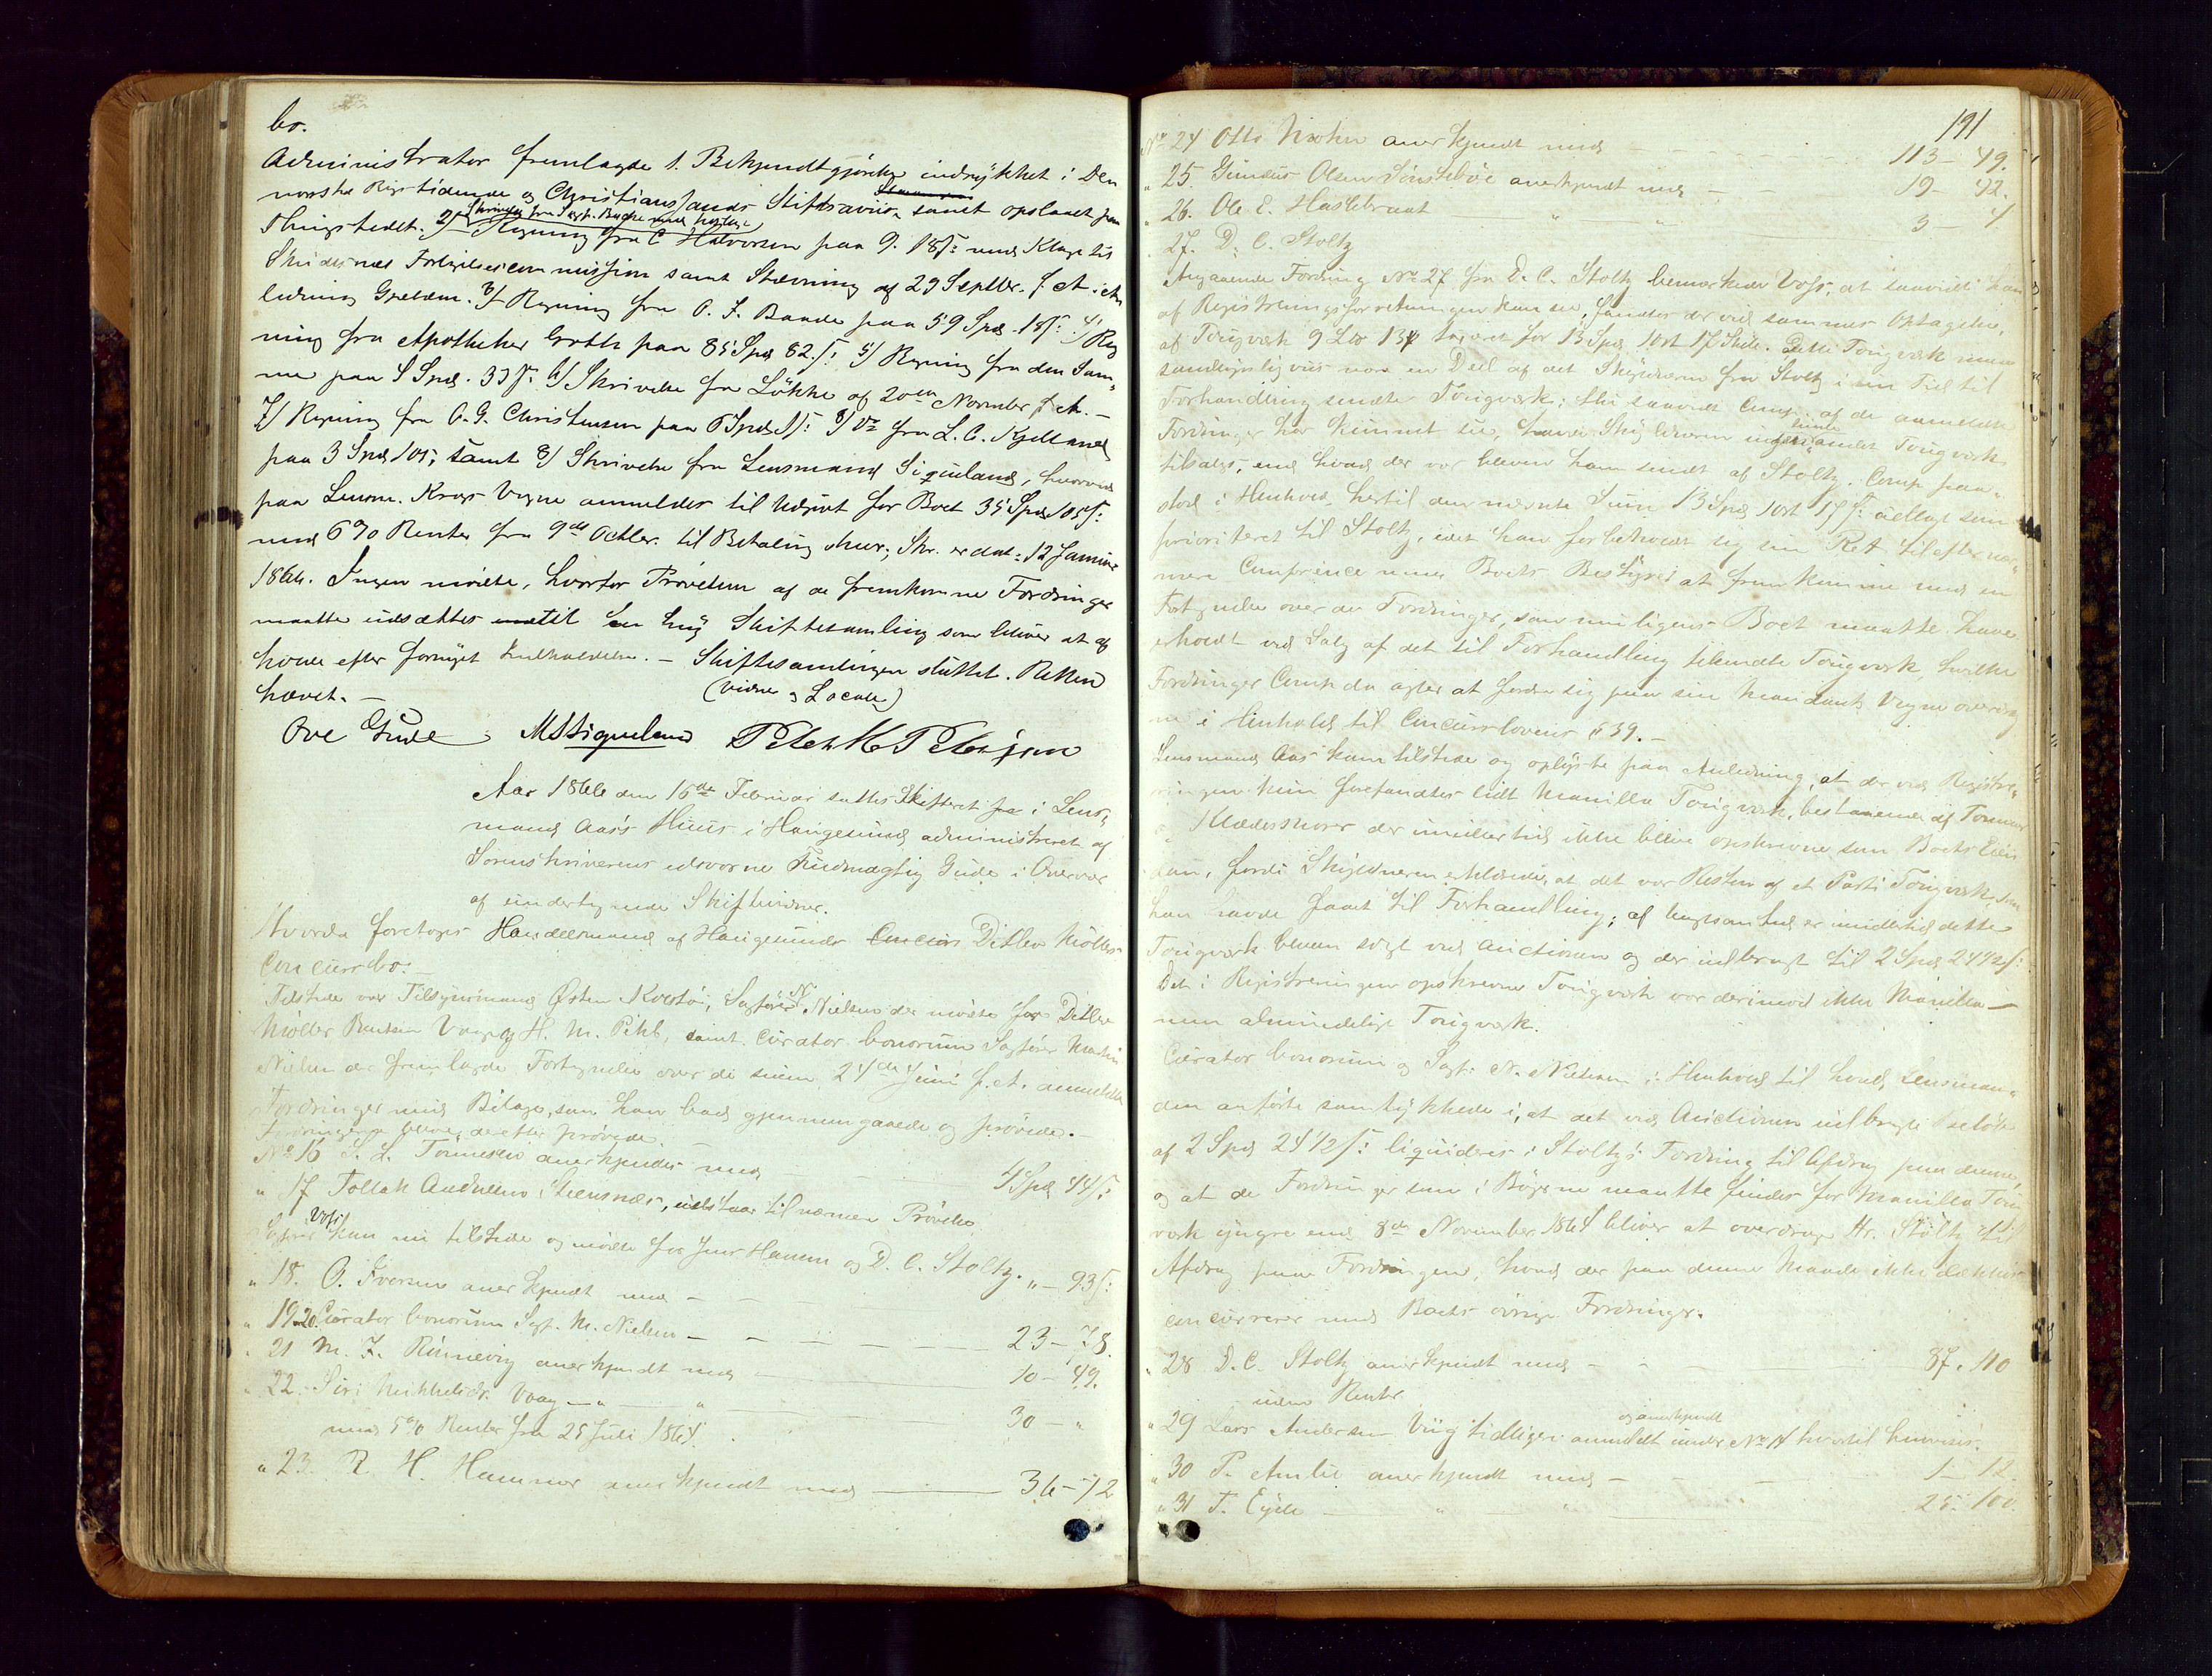 bo.
Administrator fremlagde 1. Bekjendtgjørelse indrykket i Den
norske Rigstidende og Christianssands Stiftsavis samt opslaaet paa
Thingstedet. 2/ Skrivelse fra Sagf. Regning fra C Halvorsen paa 9. 18 s: med Klage til
Skudesnæs Forligelsescommission samt Stævning af 29 Septbr. f. A. i An
ledning Gjælden. 3/ Regning fra O. J. Baade paa 59 Spd. 18 s: 4/ Reg
ning fra Apotheker Groth paa 85 Spd 82 s: 5/ Regning fra den Sam„
me paa Spd. 33 s: 6/ Skrivelse fra Løkke af 20de November f. A. –
7/ Regning fra O. G. Christensen paa 6 Spd s: 8/ Do fra L. C. Kjelland
paa 3 Spd 101; samt 8/ Skrivelse fra Lensmand Siqueland, hvorved
paa Lensm. Krags Vegne anmeldes til Udgivt for Boet 35 Spd 105 s:
med 6 % Renter fra 9de Octbr. til Betaling skeer; Skr. er dat: 12 Januar
1866. Ingen mødte, hvorfor Prøvelsen af de fremkomne Fordringer
maatte udsættes til en Skiftesamling som bliver at af
holde efter fornyet Indkaldelse. – Skiftesamlingen sluttet. Retten
hævet. – (Vidner & Locale)
Ove Gude MSiqueland Peter K Petersen
Aar 1866 den 16de Februar sattes Skifteret i Lens„
mand Aas's Huus i Haugesund administreret af
Sorenskriverens edsvorne Fuldmægtig Gude i Overvær
af undertegnede Skiftevidner.
Hvorda foretoges Handelsmand af Haugesund Ditlev Møllers
Concursbo. –
Tilstede var Tilsynsmand Østen Kvestøi, Sagfører N. Nielsen der mødte for Ditlev
Møller Vaage og H. M. Pihl, samt Curator bonorum Sagfører Martin
Nielsen der fremlagde Fortegnelse over de siden 24de Juni f. A. anmeldte
Fordringer med Bilage, som han bad gjennemgaaede og prøvede. –
Fordringerne bleve derefter prøvede. –
No 16 S. L. Tønnesen anerkjendes med 4 Spd 44 s:
„ 17 Tollak Audensen Steensnæs, udstaar til nærmere Prøvelse.
Sagfører Voss kom nu tilstede og mødte for Jens Hansen og D. C. Stoltz.
„ 18. O. Iversen anerkjendt med – „ – 93 s:
„ 19-20 Curator bonorum Sagf. M. Nielsen – 23 – 78.
„ 21 M. J. Rønnevig anerkjendt med 10 – 49.
„ 22. Siri Mikkelsdr. Vaag – „ – „ 30 – „
med 5 % Renter fra 25 Juli 1864.
„ 23. R. H. Hammer anerkjendt med 36 – 72
191
No 24 Otto Mohn anerkjendt med 113 – 49.
„ 25. Gunder Olsen Sønstebøe anerkjendt med 19 – 92.
„ 26. Ole E. Haslebrant „ „ 3 – 4
„ 27. D. C. Stoltz
Angaaende Fordring No 27 fra D. C. Stoltz bemærkede Voss, at saavidt han
af Registreringsforretningen kan see, fandtes der ved sammes Optagelse,
af Tougværk 9 13 taxeret for 13 Spd 1 ort 17 Skill. Dette Tougværk maa
sandsynligviis være en Deel af det Skyldneren fra Stoltz i sin Tid til
Forhandling sendte Tougværk; thi saavidt Comp. af de anmeldte
Fordringer har kunnet see, havde Skyldneren intet andet Tougværk
tilsalgs, end hvad der var bleven ham sendt af Stoltz. Comp. paa„
stod i Henhold hertil den nævnte Sum 13 Spd 1 ort 17 s: udlagt som
prioriteret til Stoltz, idet han forbeholdt sig sin Ret til efter nær„
mere Conference med Boets Bestyrer at fremkomme med en
Fortegnelse over de Fordringer, som muligens Boet maatte have
erholdt ved Salg af det til Forhandling tilsendte Tougværk, hvilke
Fordringer Comp. da agter at fordre sig paa sin Mandants Vegne overdrag
ne i Henhold til Concurslovens § 39. –
Lensmand Aas kom tilstede og oplyste paa Anledning, at der ved Registre„
ringen kun forefandtes lidt Manilla Tougværk, bestaaende af Tømmer
og Klædessnorer der imidlertid ikke bleve opskrevne som Boets Eien
dom, fordi Skyldneren erklærede, at det var Resten af et Parti Tougværk som
han havde faaet til Forhandling; af Uagtsomhed er imidlertid dette
Tougværk bleven solgt ved Auctionen og der indbragt til 2 Spd 24 1/2 s:
Det i Registreringen opskrevne Tougværk var derimod ikke Manilla –
men almindeligt Tougværk.
Curator bonorum og Sagf: N. Nielsen i Henhold til hvad Lensman„
den anførte samtykkede i, at det ved Auctionen indbragte Beløb
af 2 Spd 24 1/2 s: liquideres i Stoltz's Fordring til Afdrag paa denne,
og at de Fordringer som i Bøgerne maatte findes for Manilla Toug
værk yngre end 8de November 1864 bliver at overdrage Hr. Stoltz til
Afdrag paa Fordringen, hvad der paa denne Maade ikke dækkes
concurrerer med Boets øvrige Fordringer.
„ 28 D. C. Stoltz anerkjendt med – 87. 110
uden Renter
„ 29 Lars Andersen Viig tidligere anmeldt og anerkjendt under No 14 hvortil henvises.
„ 30 P. Amlie anerkjendt med – 1 – 12.
„ 31 T. Eyde „ „ 25. 100.